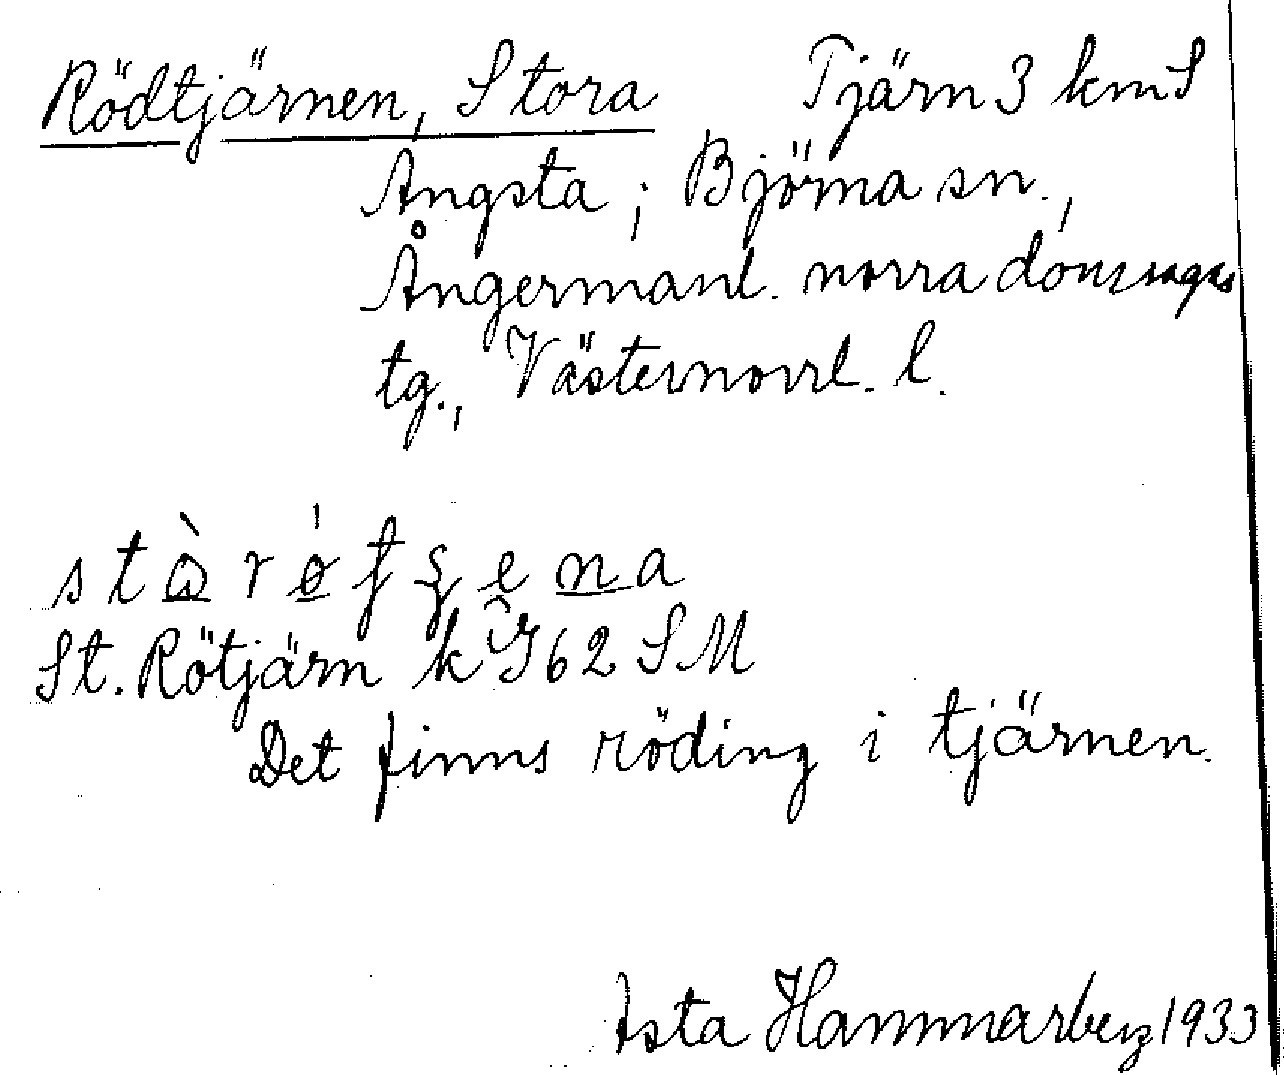 Rödtjärnen, Stora Tjärn 3 km S
Ångsta; Björna sn.,
Ångermanl. norra domsagas
tg., Västernorrl. l.
St. Rötjärn k J62 SM
Det finns röding i tjärnen.
Asta Hammarberg 1933